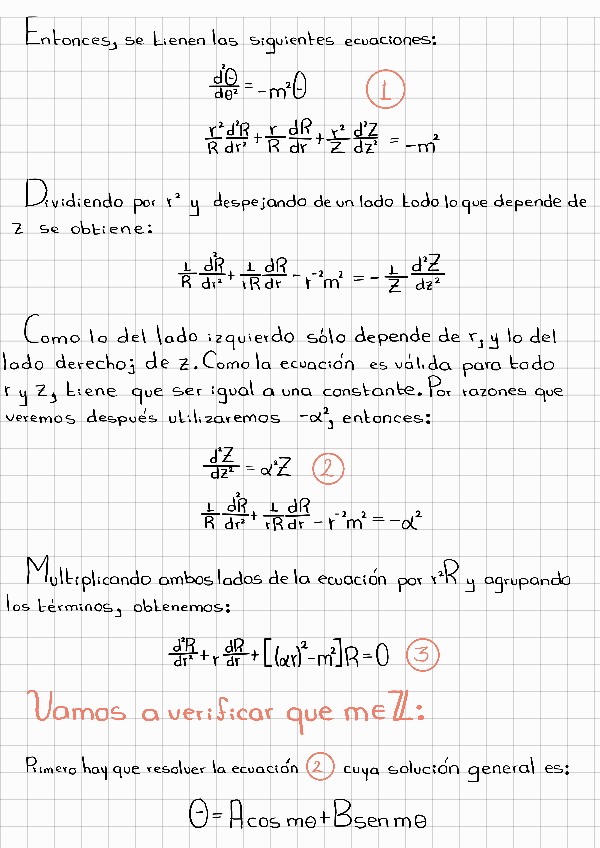 Entonces, se tienen las siguientes ecuaciones:
d²Θ/dθ² = -m²Θ ①
r²/R d²R/dr² + r/R dR/dr + r²/Z d²Z/dz² = -m²
Dividiendo por r² y despejando de un lado todo lo que depende de
z se obtiene:
1/R d²R/dr² + 1/rR dR/dr - r⁻²m² = - 1/Z d²Z/dz²
Como lo del lado izquierdo sólo depende de r, y lo del
lado derecho; de z. Como la ecuación es válida para todo
r y z, tiene que ser igual a una constante. Por razones que
veremos después utilizaremos -α², entonces:
d²Z/dz² = α²Z ②
1/R d²R/dr² + 1/rR dR/dr - r⁻²m² = -α²
Multiplicando ambos lados de la ecuación por r²R y agrupando
los términos, obtenemos:
d²R/dr² + r dR/dr + [(αr)² - m²]R = 0 ③
Vamos a verificar que m∈ℤ:
Primero hay que resolver la ecuación ② cuya solución general es:
Θ = A cos mθ + B sen mθ